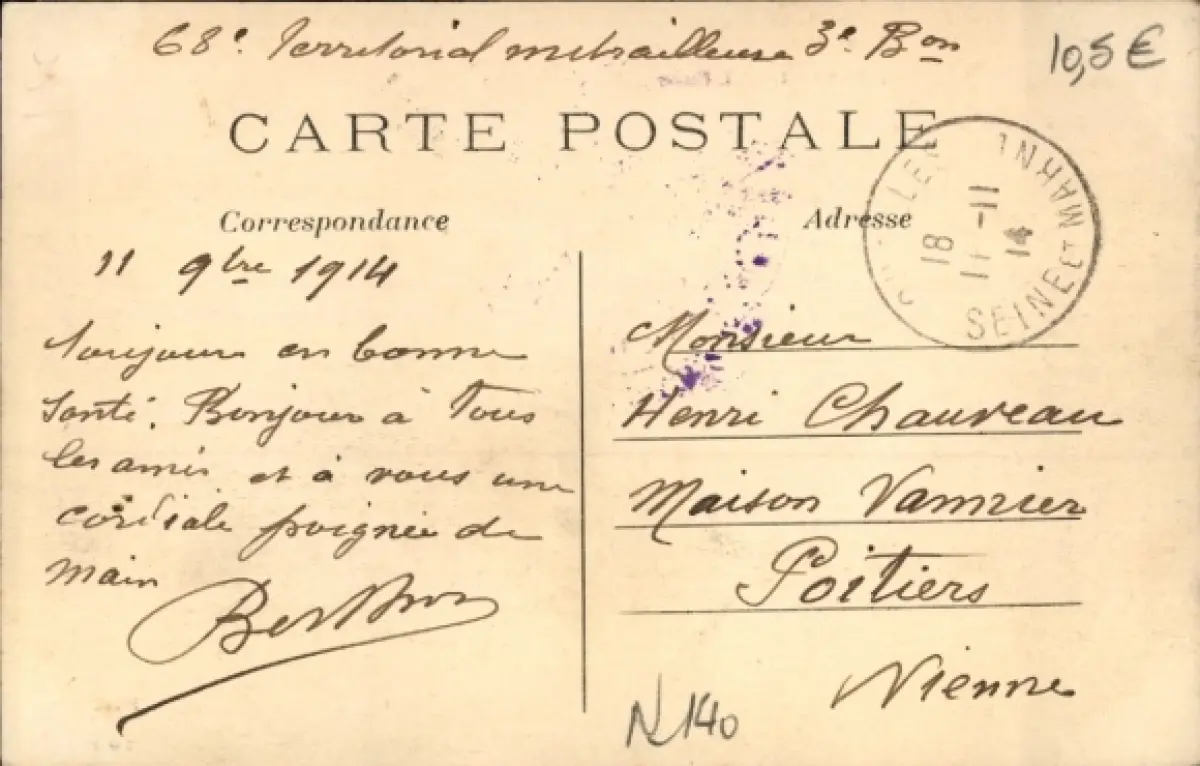 68e Territorial mitrailleuse 3e Bon
10,5 €
CARTE POSTALE
Correspondance
11 9bre 1914
Toujours en bonne
santé. Bonjour à Tous
les amis et à vous une
cordiale poignée de
main
Berthon
Adresse
Monsieur
Henri Chauveau
Maison Vannier
Poitiers
Vienne
18
11 -11
14
SEINE ET MARNE
N 140